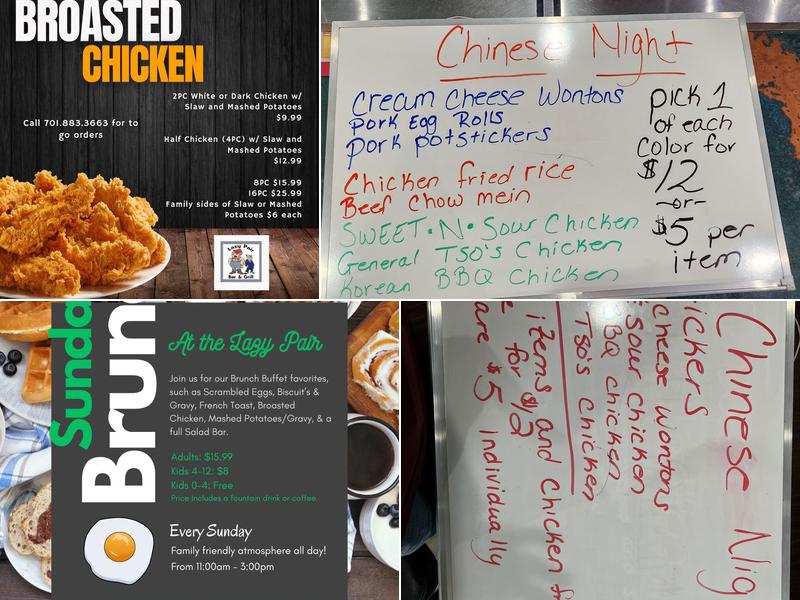 BROASTED
CHICKEN
2PC White or Dark Chicken w/
Slaw and Mashed Potatoes
$9.99
Call 701.883.3663 for to
go orders
Half Chicken (4PC) w/ Slaw and
Mashed Potatoes
$12.99
8PC $15.99
16PC $25.99
Family sides of Slaw or Mashed
Potatoes $6 each
Lazy Pair
Bar & Grill
Chinese Night
Cream Cheese Wontons
Pork Egg Rolls
Pork Potstickers
Chicken fried rice
Beef Chow mein
SWEET•N•Sour Chicken
General TSO's Chicken
Korean BBQ Chicken
Pick 1
of each
Color for
$12
-or-
$5 per
item
Sunda
Brun
At the Lazy Pair
Join us for our Brunch Buffet favorites,
such as Scrambled Eggs, Biscuit's &
Gravy, French Toast, Broasted
Chicken, Mashed Potatoes/Gravy, & a
full Salad Bar.
Adults: $15.99
Kids 4-12: $8
Kids 0-4: Free
Price Includes a fountain drink or coffee.
Every Sunday
Family friendly atmosphere all day!
From 11:00am - 3:00pm
Chinese Nig
ickers
cheese wontons
Sour chicken
BQ chicken
TSO's chicken
items and chicken fr
for $12
are $5 individually